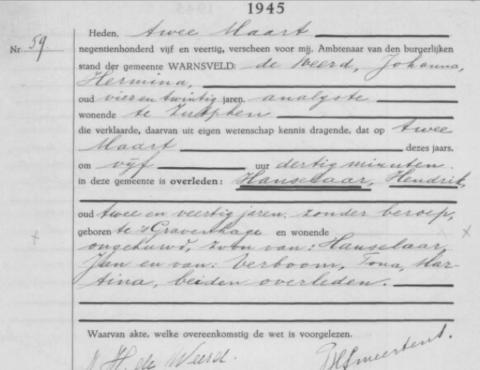 1945
Nr. 59
Heden, twee Maart
negentienhonderd vijf en veertig, verscheen voor mij, Ambtenaar van den burgerlijken
stand der gemeente WARNSVELD: de Weerd, Johanna,
Hermina,
oud vier en twintig jaren, analyste
wonende te Zutphen
die verklaarde, daarvan uit eigen wetenschap kennis dragende, dat op twee
Maart dezes jaars,
om vijf uur dertig minuten
in deze gemeente is overleden: Hanselaar, Hendrik,
oud twee en veertig jaren, zonder beroep,
geboren te 's Gravenhage en wonende
ongehuwd, zoon van: Hanselaar,
Jan en van: Verboom, Tona, Mar-
tina, beiden overleden.
Waarvan akte, welke overeenkomstig de wet is voorgelezen.
H. de Weerd.